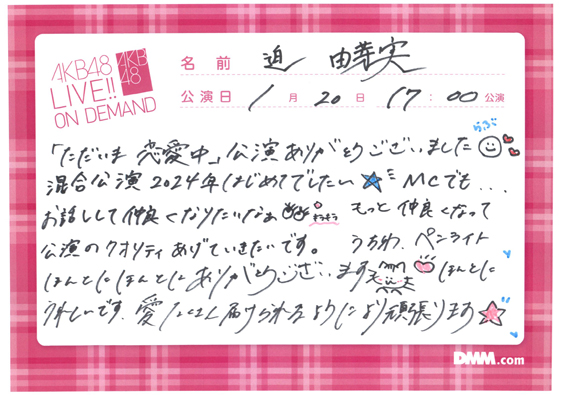 AKB48
LIVE!!
ON DEMAND
AKB
48
名前 迫 由芽実
公演日 1月20日 17:00公演
らぶ
「ただいま 恋愛中」公演ありがとうございました
混合公演2024年はじめてでしたい MCでも...
お話しして仲良くなりたいなぁ もっと仲良くなって
公演のクオリティあげていきたいです。 うちわ、ペンライト
ほんとにほんとにありがとうございます ほんとに
うれしいです、愛 届けられるようにより頑張ります
DMM.com